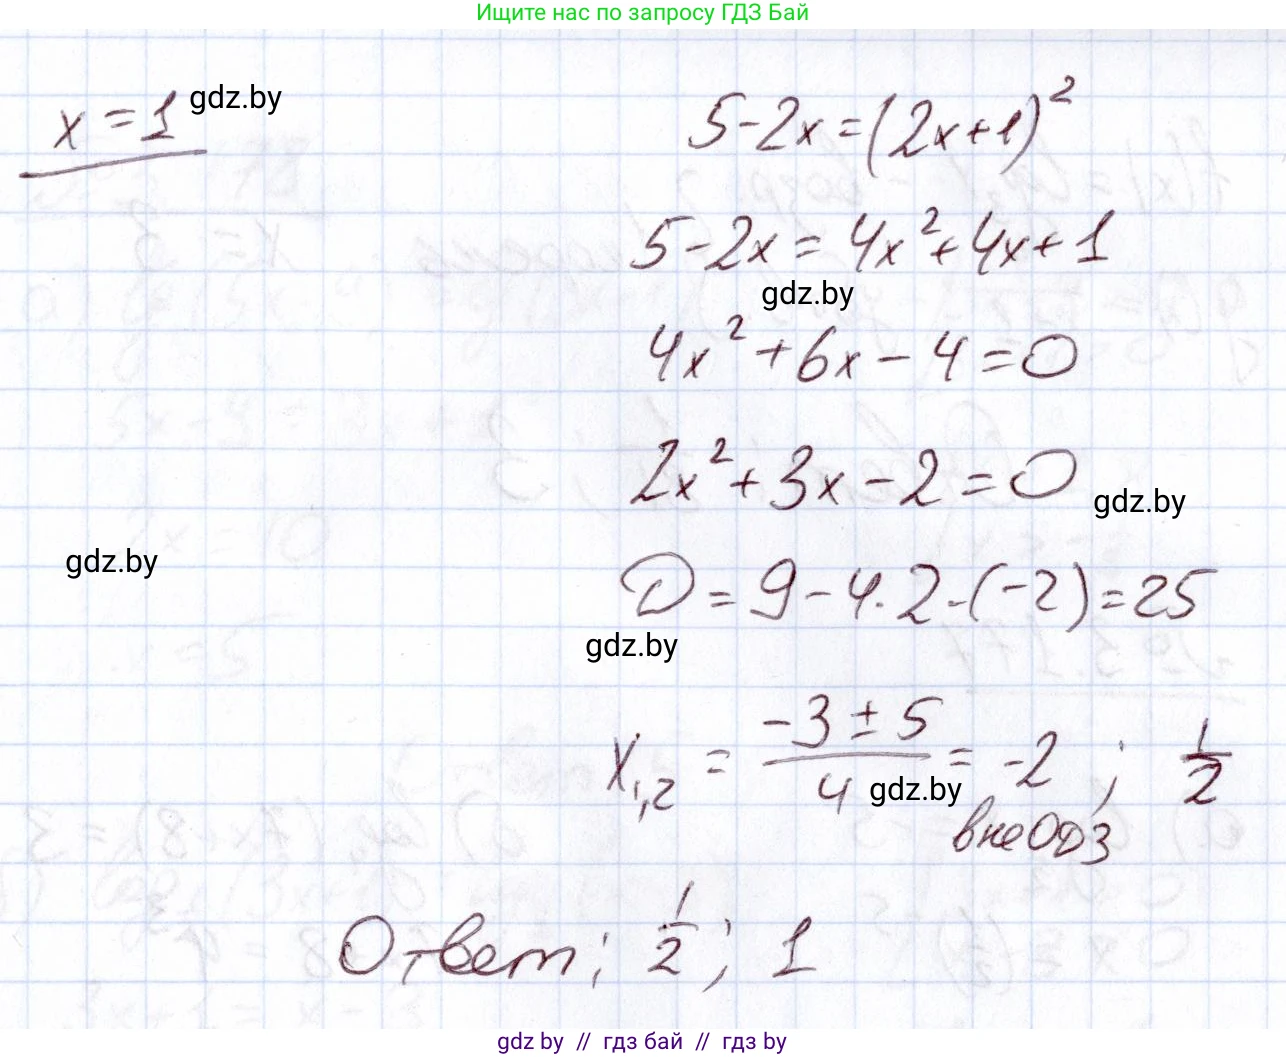 Ищите нас по запросу ГДЗ Бай
x = 1
gdz.by
5-2x=(2x+1)²
5-2x = 4x²+4x+1
gdz.by
4x²+6x-4=0
2x²+3x-2=0
gdz.by
gdz.by
D = 9-4·2·(-2)=25
gdz.by
x₁,₂ = (-3±5)/4 = -2 ; 1/2
gdz.by
вне ОДЗ
Ответ: 1/2 ; 1
gdz.by // гдз бай // гдз by